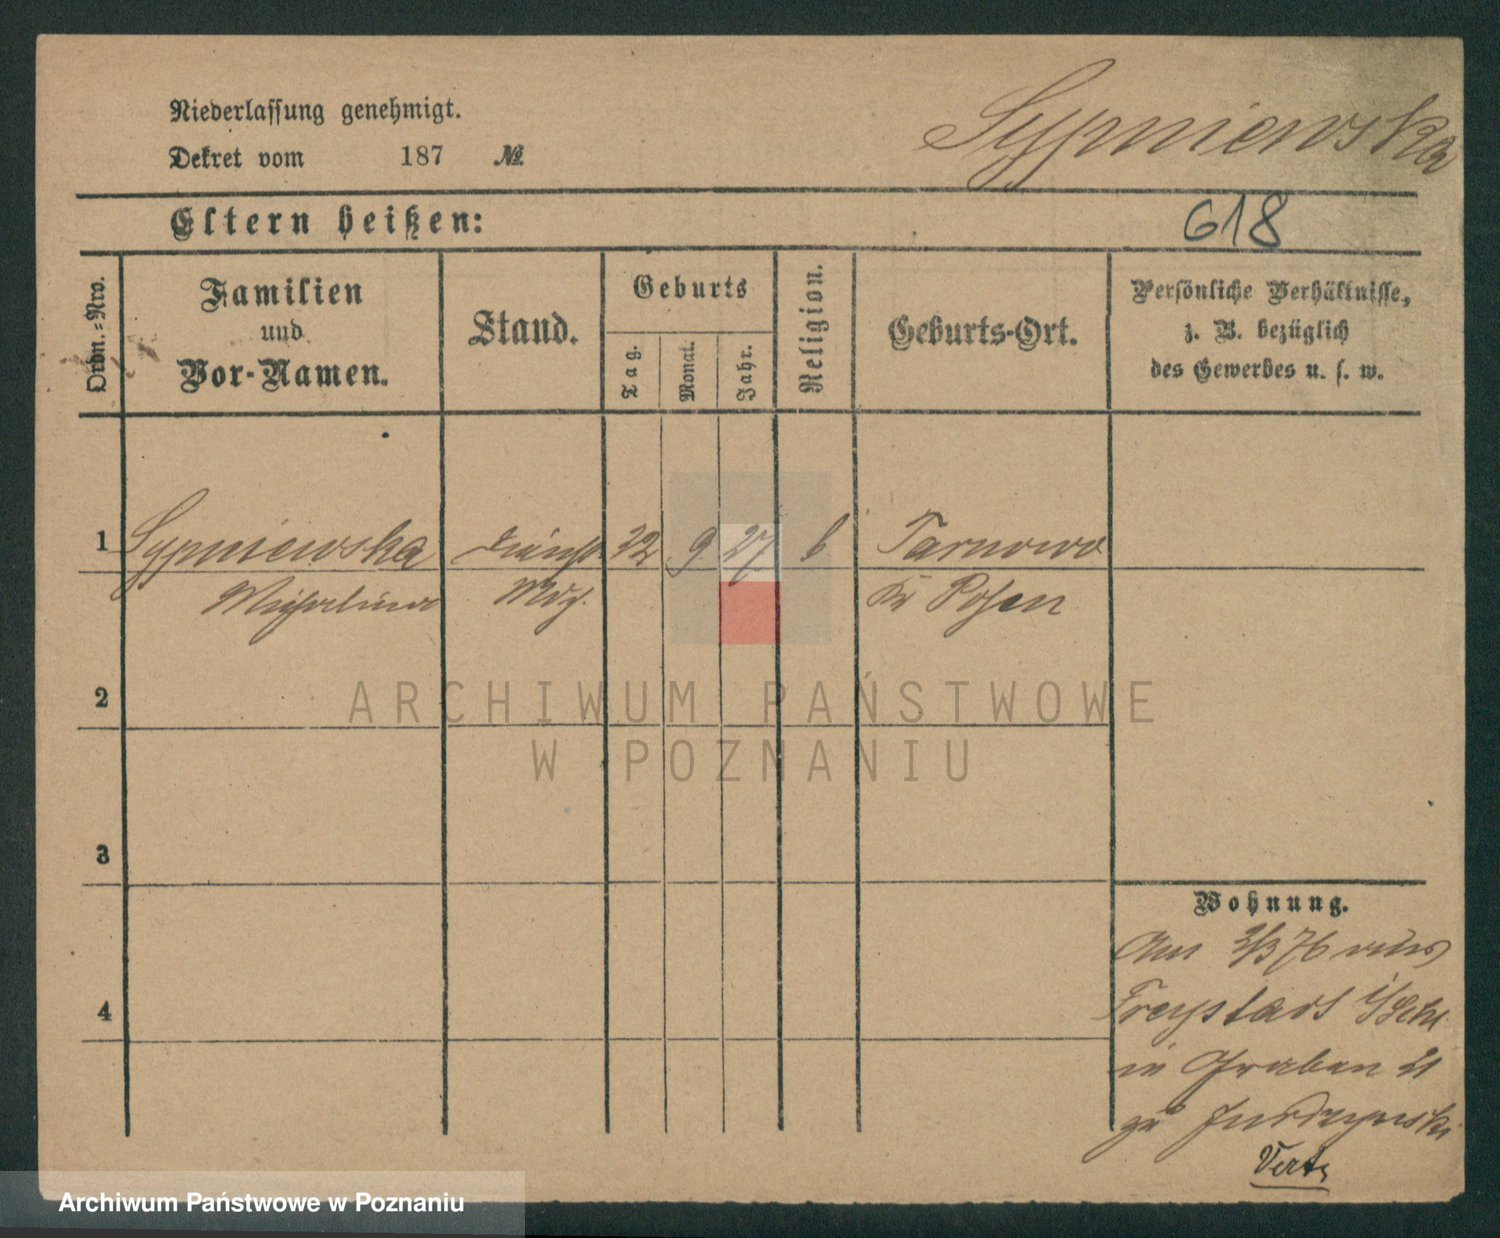 Niederlassung genehmigt.
Sypniewska
Dekret vom 187 №
Eltern heißen:
618
Ordn.-Nro.
Familien
und
Vor-Namen.
Stand.
Geburts
Tag.
Monat.
Jahr.
Religion.
Geburts-Ort.
Persönliche Verhältnisse,
z. B. bezüglich
des Gewerbes u. s. w.
1 Sypniewska Dienst 9 27 Tarnowo
Mdch. Kr Posen
2
ARCHIWUM PAŃSTWOWE
W POZNANIU
3
Wohnung.
Am 3/3 76 aus
Freystadt i/Schl
in Graben 21
zu
4
Verte
Archiwum Państwowe w Poznaniu